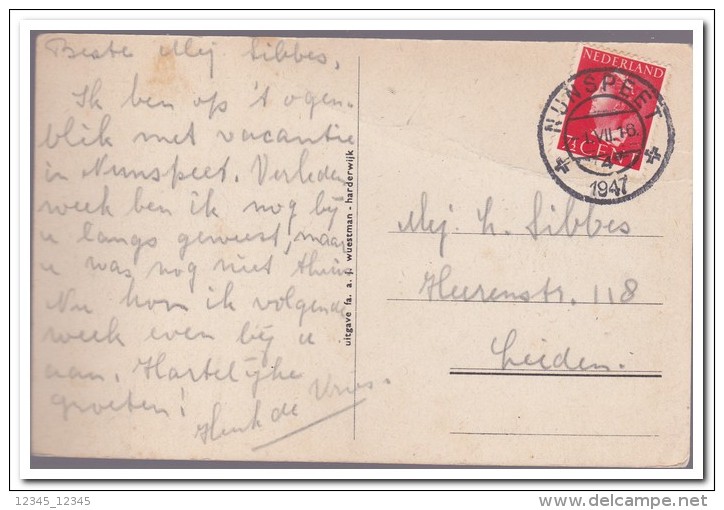 Beste Mej Sibbes,
Ik ben op 't ogen-
blik met vacantie
in Nunspeet. Verleden
week ben ik nog bij
u langs geweest, maar
u was nog niet thuis
Nu kom ik volgende
week even bij u
aan. Hartelijke
groeten!
Henk de Vries.
uitgave fa. a. j. wuestman - harderwijk
NEDERLAND
NUNSPEET
1947
Mej. h. Sibbes
Heerenstr. 118
Leiden.
12345_12345
delcampe.net